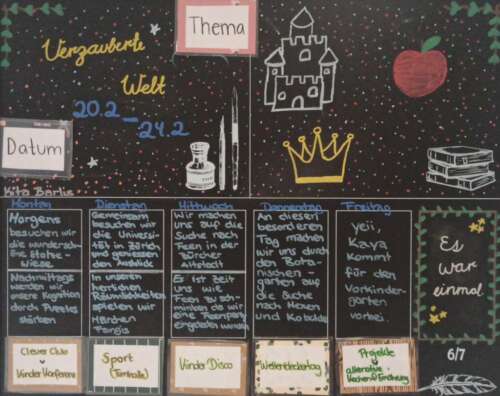 Thema
Verzauberte
Welt
20.2 –
24.2
Datum
Kita Barlis
Montag
Morgens
besuchen wir
die wunderschö-
wiese
Nachmittags
werden wir
unsere Kognition
durch Puzzles
stärken
Dienstag
Gemeinsam
besuchen wir
die Universi-
tät in Zürich
und geniessen
den Ausblick
In unseren
herrlichen
Räumlichkeiten
spielen wir
Märchen
Fangis
Mittwoch
Wir machen
uns auf die
Suche nach
Feen in der
Zürcher
Altstadt
Es ist Zeit
uns wie
Feen zu sch-
minken da wir
eine Feenparty
ergattert wurden
Donnerstag
An diesen
besonderen
Tag machen
wir uns durch
den Bota-
nischen-
garten auf
die Suche
nach Hexen
und Kobolde
Freitag
yeii,
Kaya
kommt
für den
Vorkinder-
garten
vorbei.
Es
war
einmal
6/7
Clever Club
Kinder Konferenz
Sport
(Turnhalle)
Kinder Disco
Welterdeckertag
Projekte
alternative